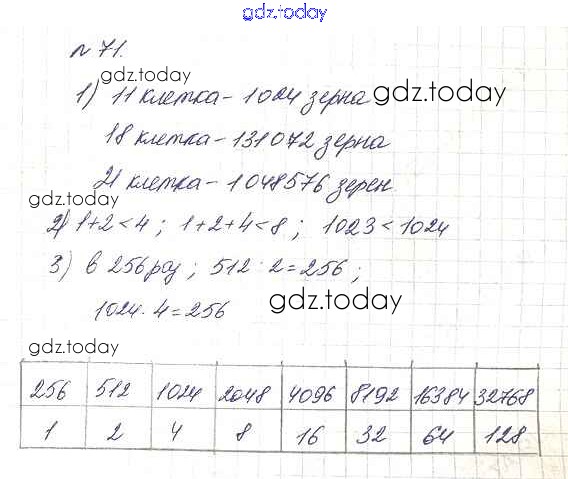 gdz.today
№ 71.
gdz.today
1) 11 клетка - 1024 зерна gdz.today
18 клетка - 131072 зерна
21 клетка - 1048576 зерен
gdz.today
2) 1+2<4 ; 1+2+4<8 ; 1023<1024
3) в 256 раз ; 512 : 2 = 256 ;
1024 : 4 = 256 gdz.today
gdz.today
256 512 1024 2048 4096 8192 16384 32768
1 2 4 8 16 32 64 128